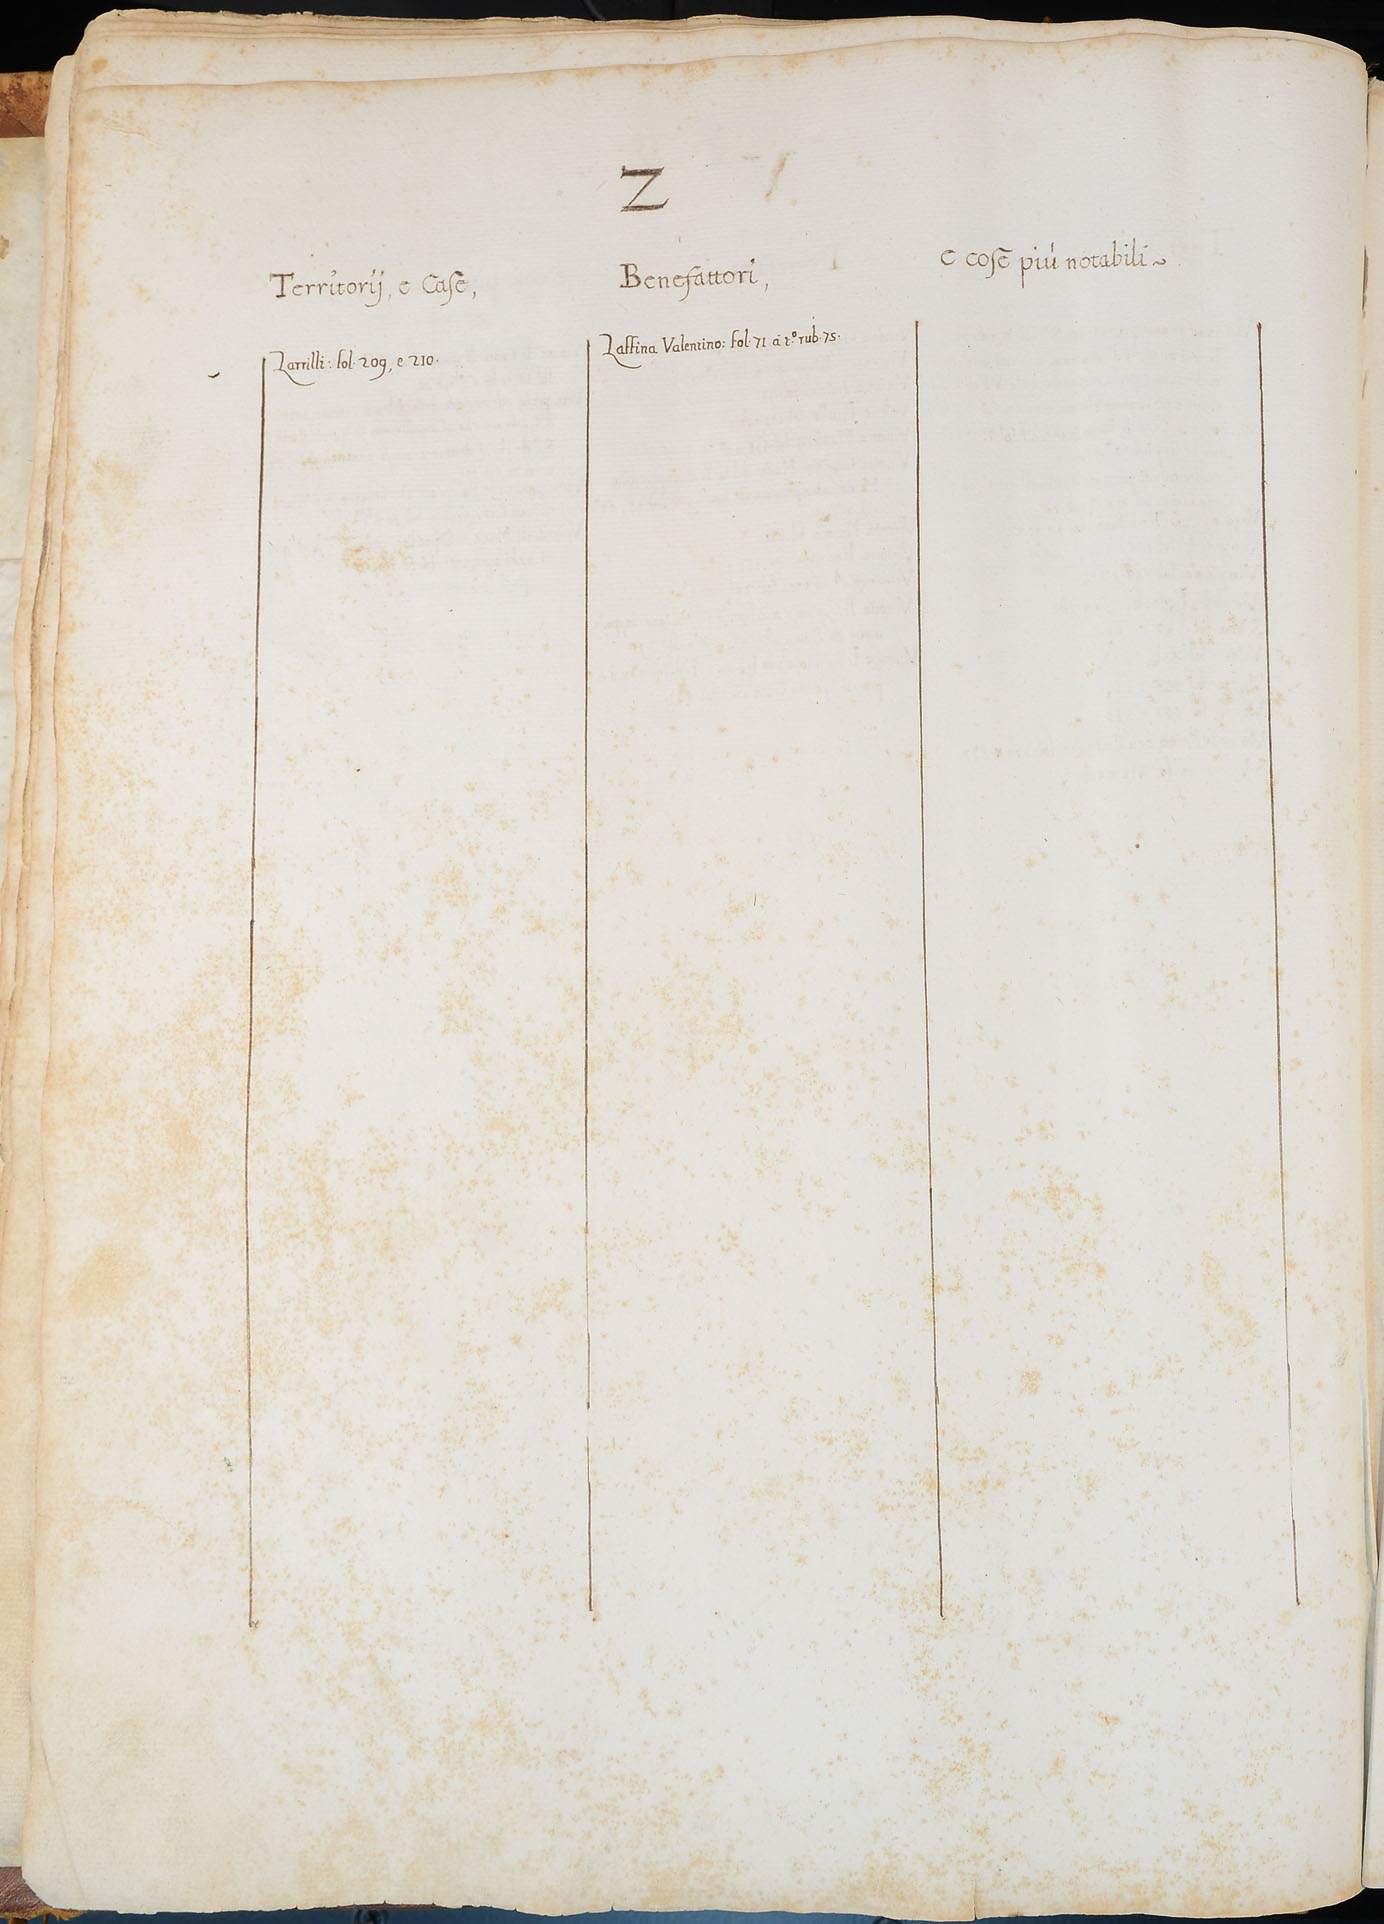 Z
Territorij, e Case,
Benefattori,
e cose più notabili~
Zarrilli: fol. 209, e 210.
Zaffina Valentino: fol. 71 à t.º rub. 75.